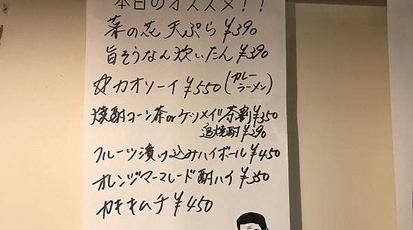 本日のオススメ！！
菜の花 天ぷら ¥390
旨そうなん炊いたん ¥390
☆カオソーイ ¥550(カレーラーメン)
焼酎コーン茶orケツメイシ茶割 ¥350
追焼酎 ¥290
フルーツ漬け込みハイボール ¥450
オレンジマーマレード酎ハイ ¥350
カキキムチ ¥450